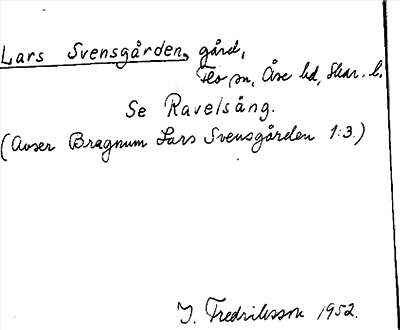 Lars Svensgården, gård,
Flo sn, Åse hd, Skar. l.
Se Ravelsång.
(Avser Bragnum Lars Svensgården 1:3.)
J. Fredriksson 1952.